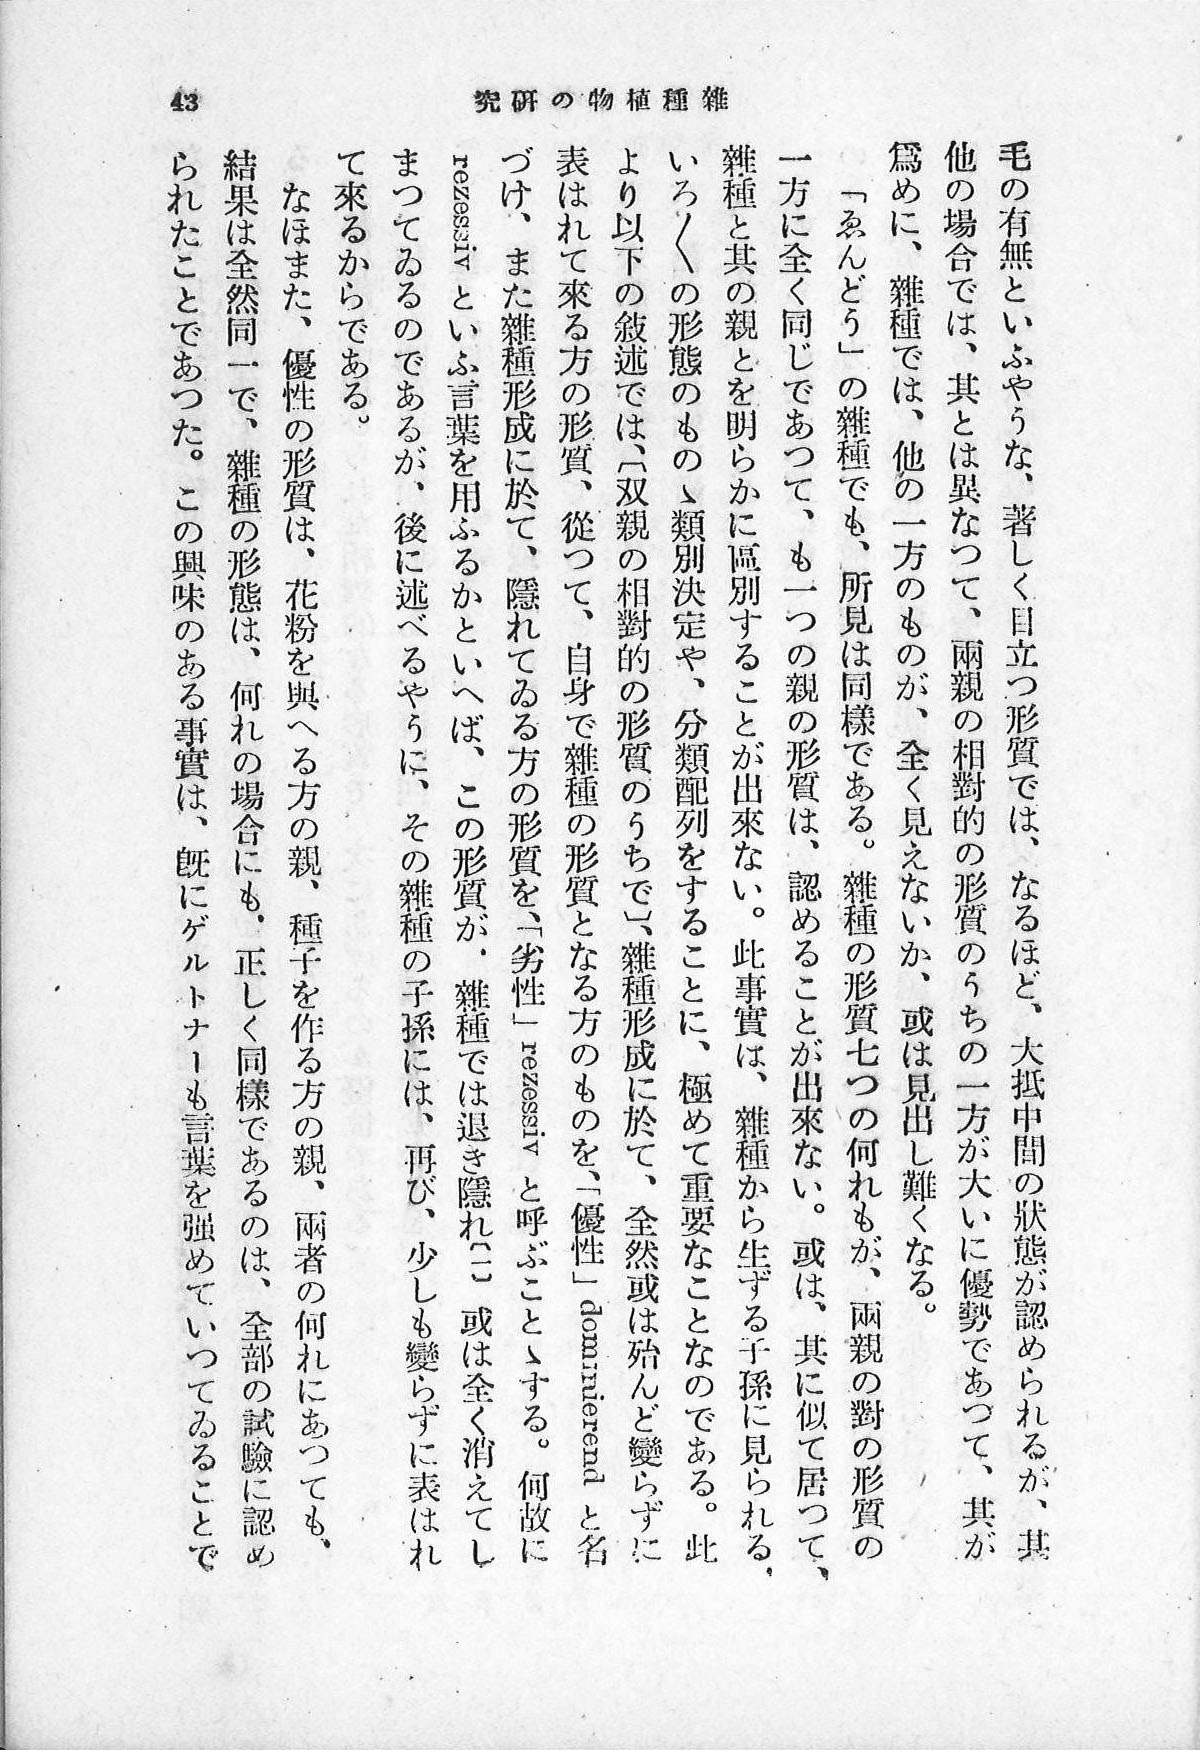 雜種植物の硏究
43
毛の有無といふやうな、著しく目立つ形質では、なるほど、大抵中間の狀態が認められるが、其
他の場合では、其とは異なつて、兩親の相對的の形質のうちの一方が大いに優勢であつて、其が
爲めに、雜種では、他の一方のものが、全く見えないか、或は見出し難くなる。
「ゑんどう」の雜種でも、所見は同樣である。雜種の形質七つの何れもが、兩親の對の形質の
一方に全く同じであつて、も一つの親の形質は、認めることが出來ない。或は、其に似て居つて、
雜種と其の親とを明らかに區別することが出來ない。此事實は、雜種から生ずる子孫に見られる、
いろ〱の形態のものゝ類別決定や、分類配列をすることに、極めて重要なことなのである。此
より以下の敍述では、〔双親の相對的の形質のうちで〕、雜種形成に於て、全然或は殆んど變らずに
表はれて來る方の形質、從つて、自身で雜種の形質となる方のものを、「優性」dominierend と名
づけ、また雜種形成に於て、隱れてゐる方の形質を、「劣性」rezessiv と呼ぶことゝする。何故に
rezessiv といふ言葉を用ふるかといへば、この形質が、雜種では退き隱れ〔一〕或は全く消えてし
まつてゐるのであるが、後に述べるやうに、その雜種の子孫には、再び、少しも變らずに表はれ
て來るからである。
なほまた、優性の形質は、花粉を與へる方の親、種子を作る方の親、兩者の何れにあつても、
結果は全然同一で、雜種の形態は、何れの場合にも、正しく同樣であるのは、全部の試驗に認め
られたことであつた。この興味のある事實は、旣にゲルトナーも言葉を强めていつてゐることで